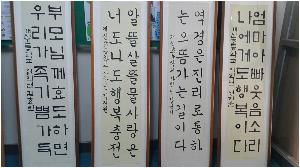 부모님께효도하면
우리가족기쁨가득
알뜰살뜰물사랑은
너도나도행복충전
역경은진리로통하
는으뜸가는길이다
엄마아빠웃음소리
나에게도행복이다